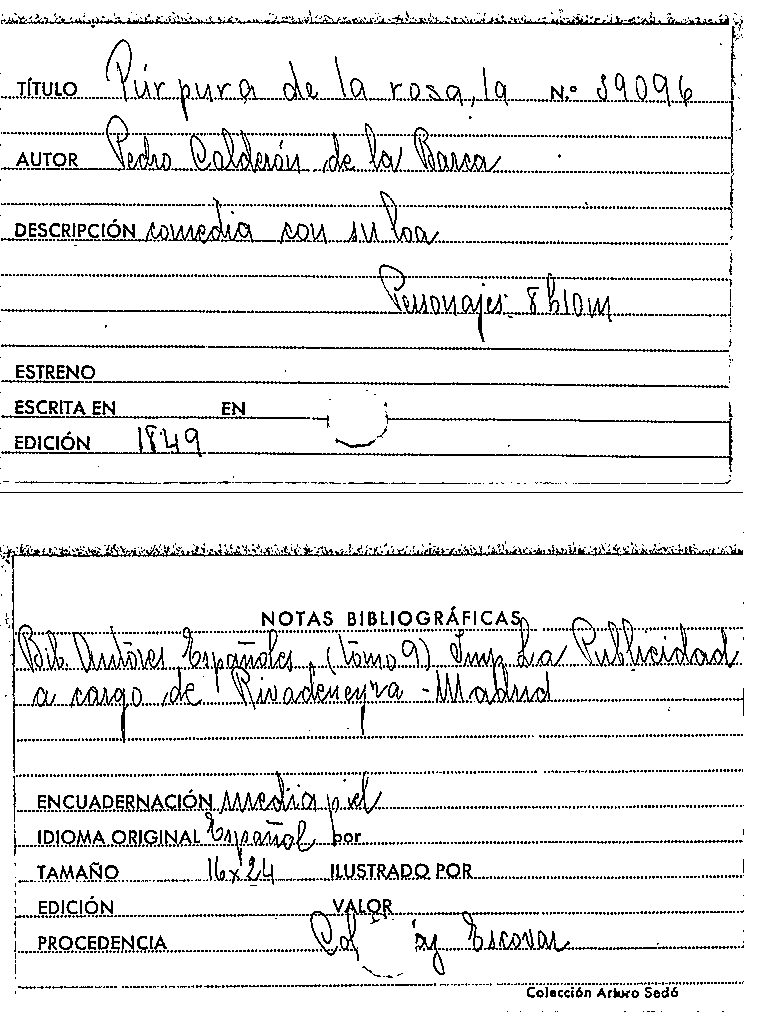 TÍTULO Púrpura de la rosa, la N.º 39096
AUTOR Pedro Calderón de la Barca
DESCRIPCIÓN comedia con su loa
Personajes: 8 h 10 m
ESTRENO
ESCRITA EN EN
EDICIÓN 1849
NOTAS BIBLIOGRÁFICAS
Bib. Autores Españoles, (tomo 9) Imp. La Publicidad
a cargo de Rivadeneyra - Madrid
ENCUADERNACIÓN media piel
IDIOMA ORIGINAL Español por
TAMAÑO 16x24 ILUSTRADO POR
EDICIÓN VALOR
PROCEDENCIA Col Escovar
Colección Arturo Sedó